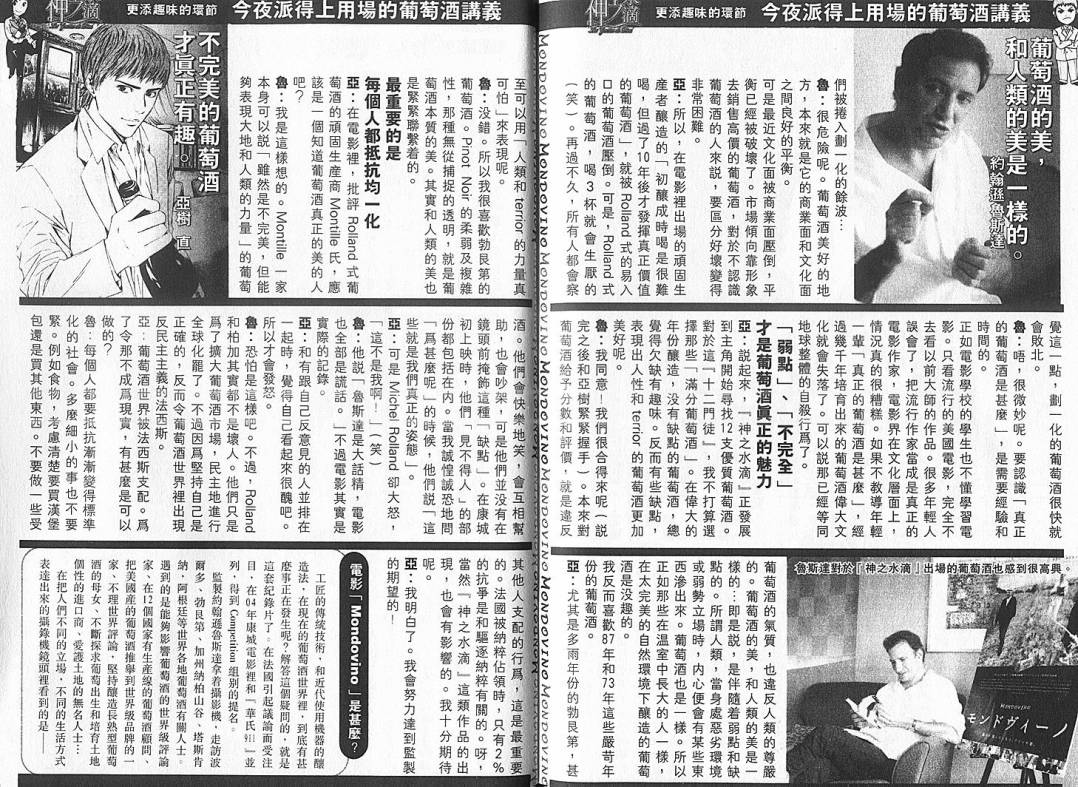 神之水滴
更添趣味的環節
今夜派得上用場的葡萄酒講義
葡萄酒的美，
和人類的美是一樣的。
約翰遜魯斯達
們被捲入劃一化的餘波…
魯：很危險呢。葡萄酒美好的地
方，本來就是它的商業面和文化面
之間良好的平衡。
可是最近文化面被商業面壓倒，平
衡已經被破壞了。市場傾向靠形象
去銷售高價的葡萄酒，對於不認識
葡萄酒的人來說，要區分好壞變得
非常困難。
亞：所以，在電影裡出場的頑固生
產者釀造的「初釀成時喝是很難
喝，但過了10年後才發揮真正價值
的葡萄酒」，就被Rolland式的易入
口的葡萄酒壓倒。可是，Rolland式
的葡萄酒，喝3杯就會生厭的
（笑）。再過不久，所有人都會察
覺這一點，劃一化的葡萄酒很快就
會敗北。
魯：唔，很微妙呢。要認識「真正
的葡萄酒是甚麼」，是需要經驗和
時間的。
正如電影學校的學生也不懂學習電
影。只看流行的美國電影，完全不
去看以前大師的作品。很多年輕人
誤會了，把流行作家當成是真正的
電影作家，電影界在文化層面上，
情況真的很糟糕。如果不教導年輕
一輩「真正的葡萄酒是甚麼」，經
過幾千年培育出來的葡萄酒偉大文
化就會失落了。可以說那已經等同
地球整體的自殺行爲了。
「弱點」、「不完全」
才是葡萄酒眞正的魅力
亞：說起來，『神之水滴』正發展
到主角開始尋找12支優質葡萄酒。
對於這「十二門徒」，我不打算選
擇那些「滿分葡萄酒」。在偉大的
年份釀造，沒有缺點的葡萄酒，總
覺得欠缺有趣味。反而有些缺點，
表現出人性和terrior的葡萄酒更加
美好呢。
魯：我同意！我們很合得來呢（說
完之後和亞樹緊緊握手）。本來對
葡萄酒給予分數和評價，就是違反
葡萄酒的氣質，也違反人類的尊嚴
的。葡萄酒的美，和人類的美是一
樣的…即是說，是伴隨着弱點和缺
點的。所謂人類，當身處惡劣環境
或弱勢立場時，內心便會有某些東
西滲出來。葡萄酒也是一樣。所以
正如那些在溫室中長大的人一樣，
在太完美的自然環境下釀造的葡萄
酒是沒趣的。
我反而喜歡87年和73年這些嚴苛年
份的葡萄酒。
亞：尤其是多雨年份的勃艮第，甚
魯斯達對於「神之水滴」出場的葡萄酒也感到很高興。
MONDOVINO
モンドヴィーノ
MONDOVINO MONDOVINO MONDOVINO MONDOVINO MONDOVINO MONDOVINO
神之水滴
更添趣味的環節
今夜派得上用場的葡萄酒講義
至可以用「人類和terrior的力量真
可怕」來表現呢。
魯：沒錯。所以我很喜歡勃艮第的
葡萄酒。Pinot Noir的柔弱及複雜
性，那種無從捕捉的透明，就是葡
萄酒本質的美。其實和人類的美也
是緊緊聯繫着的。
最重要的是
每個人都抵抗均一化
亞：在電影裡，批評Rolland式葡
萄酒的頑固生産商Montille氏，應
該是一個知道葡萄酒真正的美的人
吧？
魯：我是這樣想的。Montille一家
本身可以說「雖然是不完美，但能
夠表現大地和人類的力量」的葡萄
不完美的葡萄酒
才眞正有趣。
亞樹 直
酒。他們會快樂地笑，會互相幫
助，也會吵架，可是他們並沒有在
鏡頭前掩飾這種「缺點」。在康城
初上映時，他們「見不得人」的部
份都包括在內。當我誠惶誠恐地問
「爲甚麼呢」的時候，他們說「這
些就是我們真正的姿態」。
亞：可是Michel Rolland卻大怒，
「這不是我啊！」（笑）
魯：他說「魯斯達是大話精，電影
也全部是謊話。」不過電影其實是
實際的記錄。
亞：和有跟自己反意見的人並排在
一起時，覺得自己看起來很醜吧。
所以才會發怒。
魯：恐怕是這樣吧。不過，Rolland
和柏加其實都不是壞人。他們只是
爲了擴大葡萄酒市場，民主地進行
全球化罷了。不過因爲堅持自己是
正確的，反而令葡萄酒世界裡出現
反民主主義的法西斯。
亞：葡萄酒世界被法西斯支配。爲
了令那不成爲現實，有甚麼是可以
做的？
魯：每個人都要抵抗漸漸變得標準
化的社會。多麼細小的事也不要
緊。例如食物，考慮清楚要買漢堡
包還是買其他東西。不要做一些受
其他人支配的行爲，這是最重要
的。法國被納粹佔領時，只有2%
的抗爭是和驅逐納粹有關的。呀，
當然『神之水滴』這類作品的出
現，也會有影響的。我十分期待
呢。
亞：我明白了。我會努力達到監製
的期望的！
電影「Mondovino」是甚麼？
工匠的傳統技術，和近代使用機器的釀
造法，在現在的葡萄酒世界裡，到底有甚
麼事正在發生呢？解答這個疑問的，就是
這套紀錄片了。在法國引起議論而受注
目，在04年康城電影裡和『華氏911』並
列，得到Competition組別的提名。
監製約翰遜魯斯達拿着攝影機，走訪波
爾多、勃艮第、加州納柏山谷、塔斯肯
納，阿根廷等世界各地葡萄酒有關人士。
遇到的是能夠影響葡萄酒的世界級評論
家、在12個國家有生産線的葡萄酒顧問、
把美國產的葡萄酒推舉到世界級品牌的一
家、不理世界評論，堅持釀造長熟型葡萄
酒的母女、不斷探求葡萄出生和培育土地
個性的進口商、愛護土地的無名人士…
在把人們不同的立場，不同的生活方式
表達出來的攝錄機鏡頭裡看到的是——